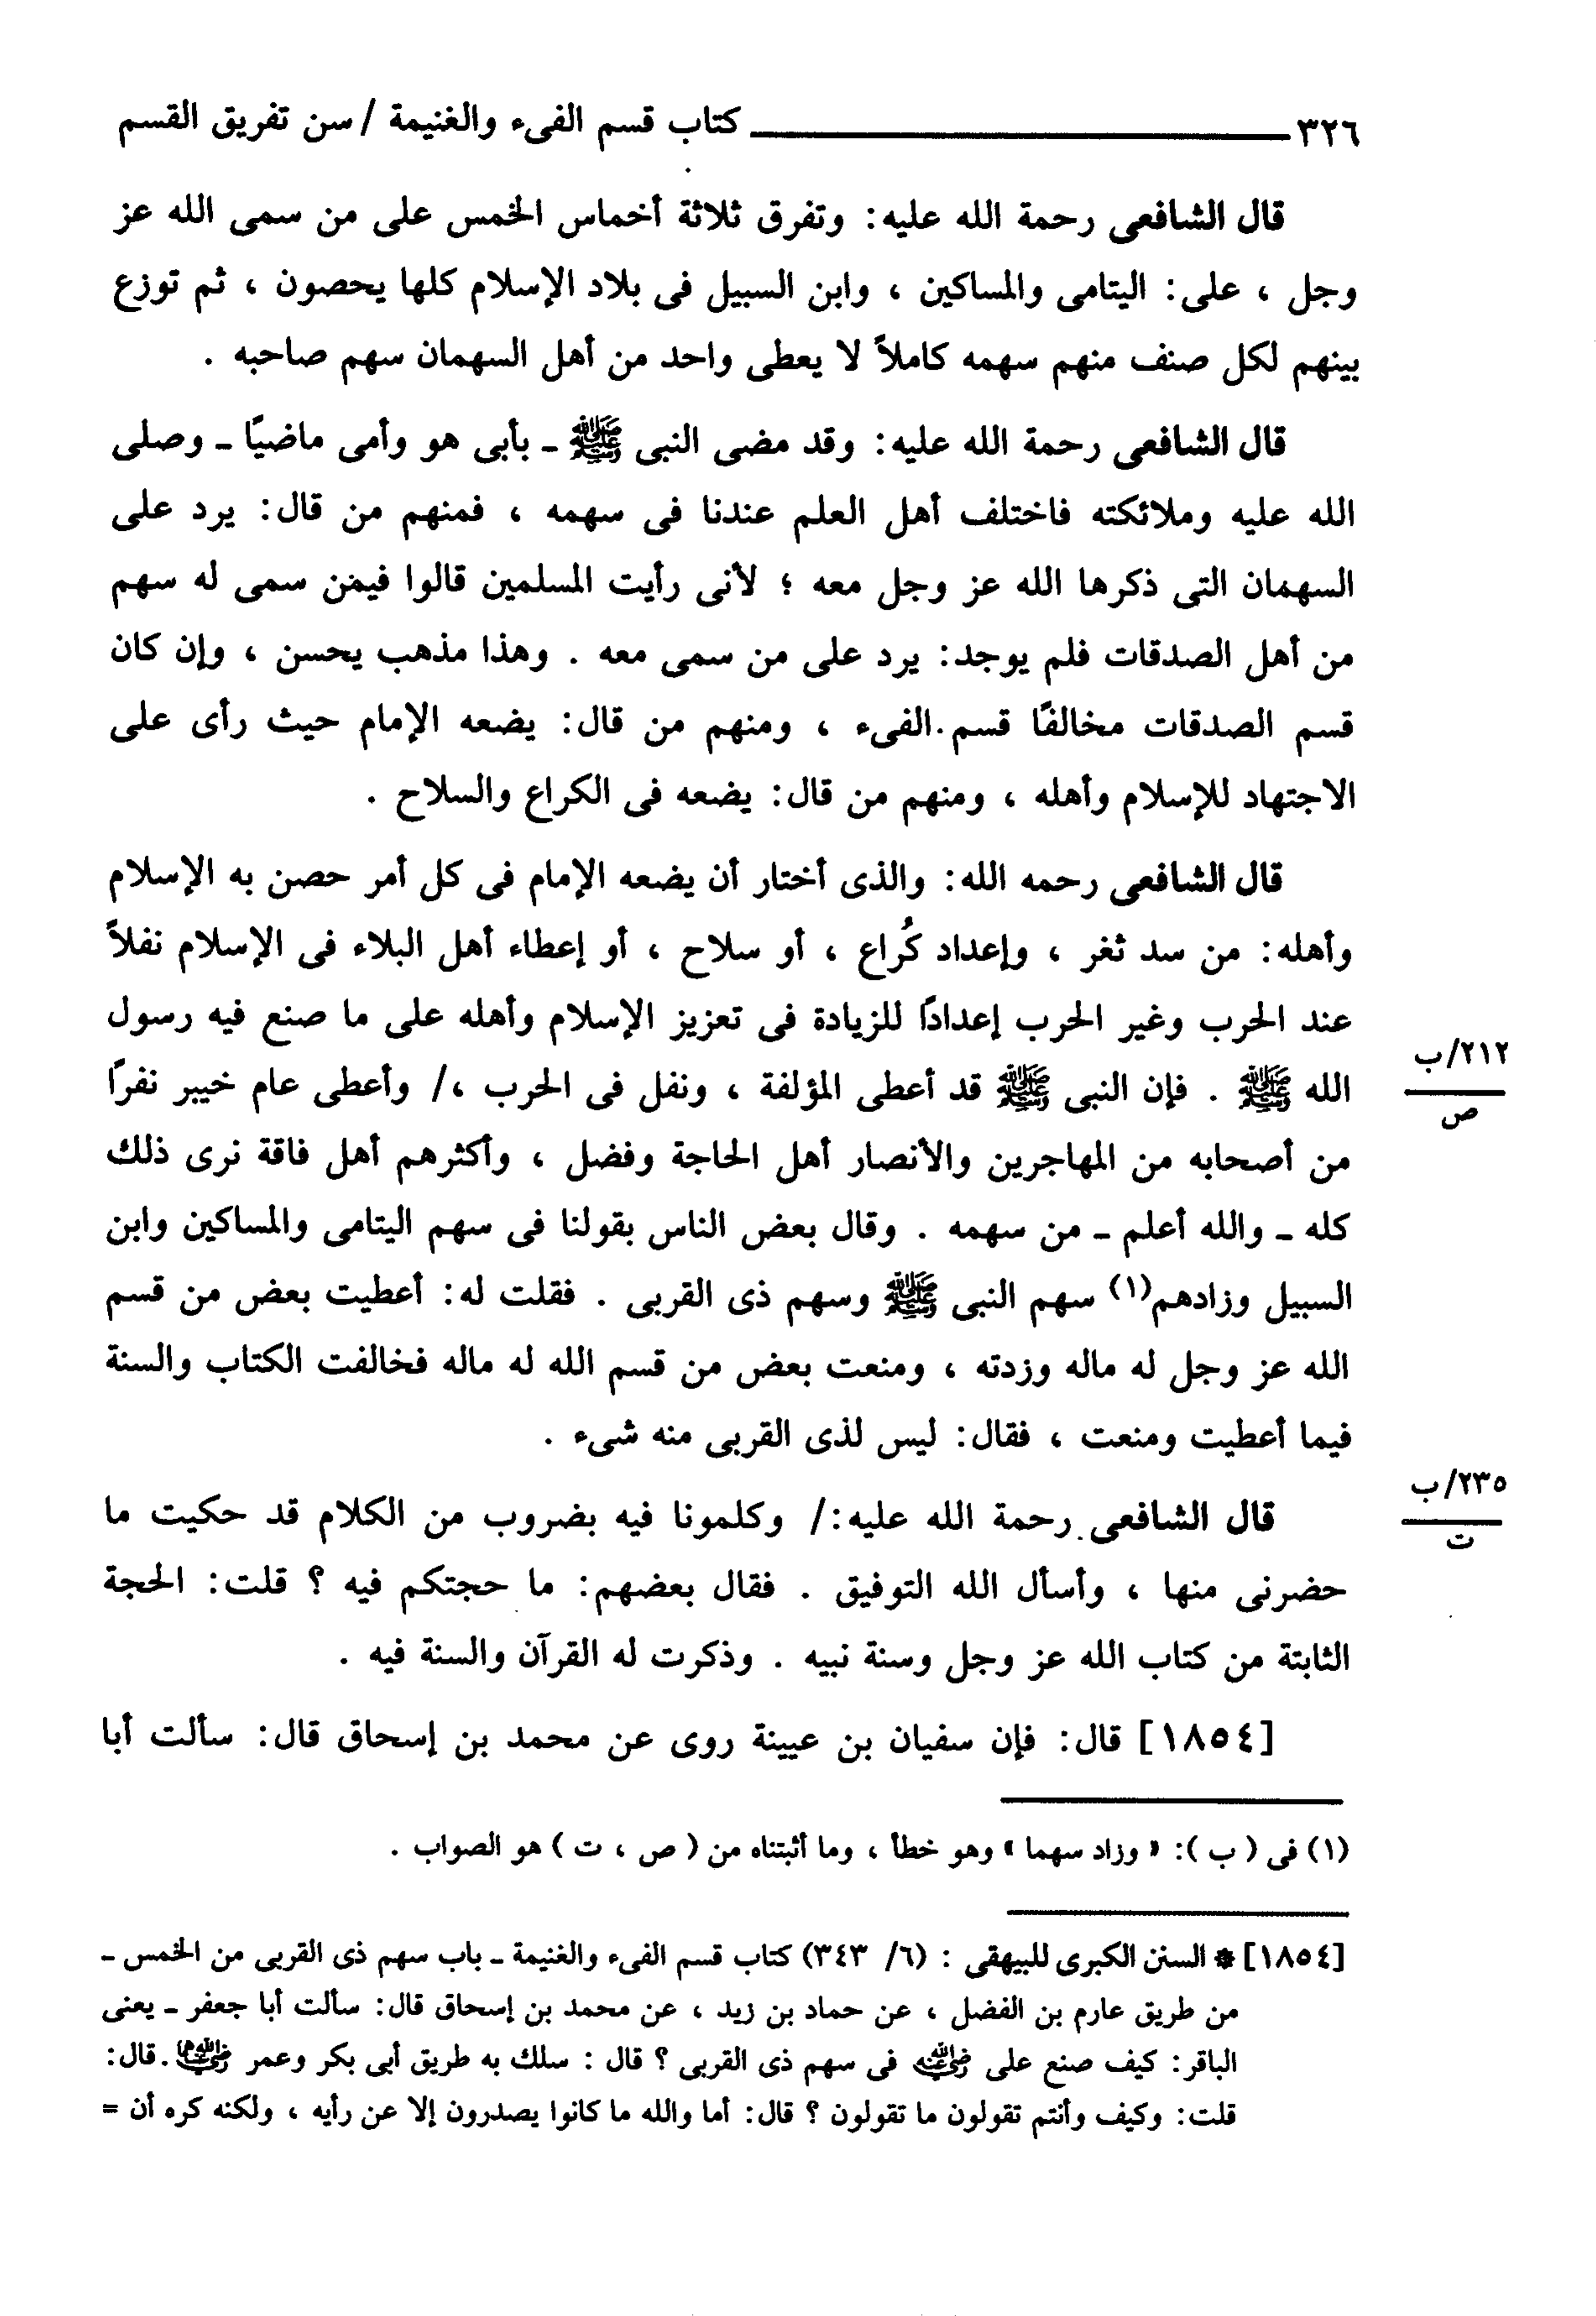 ٣٢٦ ــــــــــــــــــ كتاب قسم الفىء والغنيمة / سن تفريق القسم
قال الشافعى رحمة الله عليه: وتفرق ثلاثة أخماس الخمس على من سمى الله عز
وجل ، على: اليتامى والمساكين ، وابن السبيل فى بلاد الإسلام كلها يحصون ، ثم توزع
بينهم لكل صنف منهم سهمه كاملاً لا يعطى واحد من أهل السهمان سهم صاحبه .
قال الشافعى رحمة الله عليه: وقد مضى النبى ﷺ ـ بأبى هو وأمى ماضيًا ـ وصلى
الله عليه وملائكته فاختلف أهل العلم عندنا فى سهمه ، فمنهم من قال: يرد على
السهمان التى ذكرها الله عز وجل معه ؛ لأنى رأيت المسلمين قالوا فيمن سمى له سهم
من أهل الصدقات فلم يوجد: يرد على من سمى معه . وهذا مذهب يحسن ، وإن كان
قسم الصدقات مخالفًا قسم الفىء ، ومنهم من قال: يضعه الإمام حيث رأى على
الاجتهاد للإسلام وأهله ، ومنهم من قال: يضعه فى الكراع والسلاح .
قال الشافعى رحمه الله: والذى أختار أن يضعه الإمام فى كل أمر حصن به الإسلام
وأهله: من سد ثغر ، وإعداد كُراع ، أو سلاح ، أو إعطاء أهل البلاء فى الإسلام نفلاً
عند الحرب وغير الحرب إعدادًا للزيادة فى تعزيز الإسلام وأهله على ما صنع فيه رسول
الله ﷺ . فإن النبى ﷺ قد أعطى المؤلفة ، ونفل فى الحرب ،/ وأعطى عام خيبر نفرًا
٢١٢/ب
ص
من أصحابه من المهاجرين والأنصار أهل الحاجة وفضل ، وأكثرهم أهل فاقة نرى ذلك
كله ـ والله أعلم ـ من سهمه . وقال بعض الناس بقولنا فى سهم اليتامى والمساكين وابن
السبيل وزادهم(١) سهم النبى ﷺ وسهم ذى القربى . فقلت له: أعطيت بعض من قسم
الله عز وجل له ماله وزدته ، ومنعت بعض من قسم الله له ماله فخالفت الكتاب والسنة
فيما أعطيت ومنعت ، فقال: ليس لذى القربى منه شىء .
قال الشافعى رحمة الله عليه:/ وكلمونا فيه بضروب من الكلام قد حكيت ما
٢٣٥/ب
ت
حضرنى منها ، وأسأل الله التوفيق . فقال بعضهم: ما حجتكم فيه ؟ قلت: الحجة
الثابتة من كتاب الله عز وجل وسنة نبيه . وذكرت له القرآن والسنة فيه .
[١٨٥٤] قال: فإن سفيان بن عيينة روى عن محمد بن إسحاق قال: سألت أبا
(١) فى ( ب ): « وزاد سهما » وهو خطأ ، وما أثبتناه من ( ص ، ت ) هو الصواب .
[١٨٥٤] * السنن الكبرى للبيهقى : (٦/ ٣٤٣) كتاب قسم الفىء والغنيمة ـ باب سهم ذى القربى من الخمس ـ
من طريق عارم بن الفضل ، عن حماد بن زيد ، عن محمد بن إسحاق قال: سألت أبا جعفر ـ يعنى
الباقر: كيف صنع على رضي الله عنه فى سهم ذى القربى ؟ قال : سلك به طريق أبى بكر وعمر رضي الله عنهما . قال:
قلت: وكيف وأنتم تقولون ما تقولون ؟ قال: أما والله ما كانوا يصدرون إلا عن رأيه ، ولكنه كره أن =